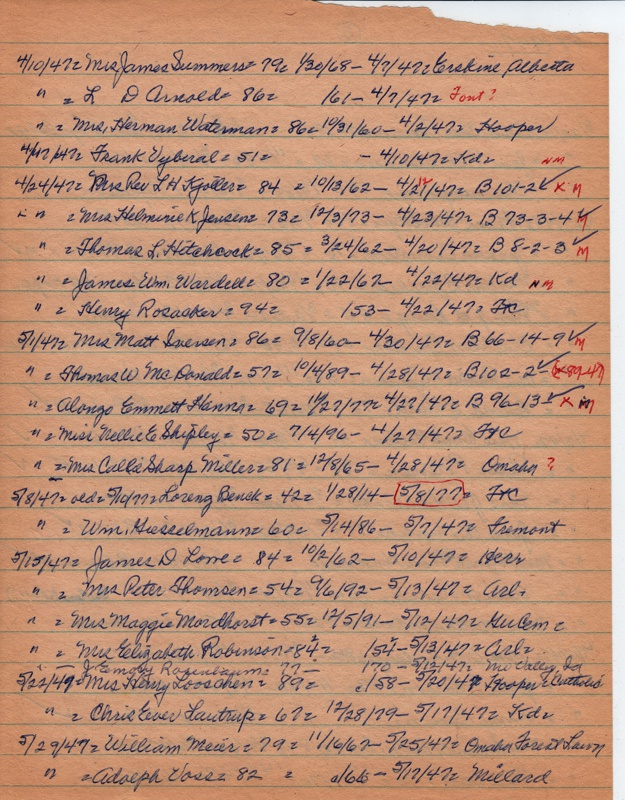 4/10/47= Mrs James Summers= 79= 1/30/68- 4/7/47= Erskine Alberta
" = L D Arnold= 86= 161- 4/7/47= Font?
" = Mrs, Herman Waterman= 86= 10/31/60- 4/2/47= Hooper
4/17/47= Frank Vybiral= 51= - 4/10/47= Kd= NM
4/24/47= Mrs Rev L H Kjoller= 84 = 10/13/62- 4/21/47= B 101-2 ✓ X M
" = Mrs Helminie K Jensen= 73= 12/3/73- 4/23/47= B 73-3-4 ✓ M
" = Thomas L. Hitchcock= 85= 3/24/62- 4/20/47= B 8-2-3 ✓ M
" = James Wm. Wardell= 80 = 1/22/67- 4/22/47= Kd NM
" = Henry Rosacker= 94= 153- 4/22/47=
5/1/47= Mrs Matt Iversen= 86= 9/8/60- 4/30/47= B 66-14-9 ✓ M
" = Thomas W Mc Donald= 57= 10/4/89- 4/28/47= B 102-2 ✓
" = Alonzo Emmett Hanna= 69= 11/27/77= 4/27/47= B 96-13 ✓ X M
" = Miss Nellie E Shipley= 50= 7/4/96- 4/27/47=
" = Mrs Sharp Miller= 81= 12/8/65- 4/28/47= Omaha ?
5/8/47= old= 5/10/77= Lorenz Benck= 42= 1/28/14- 5/8/77=
" = Wm. Giesselmann= 60= 5/14/86- 5/7/47= Fremont
5/15/47= James D Lowe= 84= 10/2/62- 5/10/47= Herr
" = Mrs Peter Thomsen= 54= 9/6/92- 5/13/47= Arl.
" = Mrs Maggie Mordhorst= 55= 12/5/91- 5/12/47=
" = Mrs Elizabeth Robinson= 84= 154- 5/13/47= Arl=
" - J. Emory Rosenbaum= 77- 170- 5/12/47= Mo Valley, Ia
5/22/47= Mrs Henry Looschen= 89= 158- 5/20/47= Hooper= Catholic
" = Chris Ever Lautrup= 67= 12/28/79- 5/17/47= Kd=
5/29/47= William Meier= 79= 11/16/67- 5/25/47= Omaha Forest Lawn
" = Adolph Voss= 82 = 5/17/47= Millard